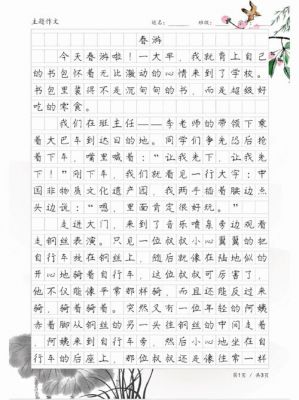 主题作文 姓名： 班级：
春游
今天春游啦！一大早，我就背上自己
的书包怀着无比激动的心情来到了学校。
书包里装得不是沉甸甸的书，而是超级好
吃的零食。
我们在班主任——李老师的带领下乘
着大巴车到达目的地。同学们争先恐后抢
着下车，嘴里喊着：“让我先下，让我先
下！”刚下车，我们就看见一行大字：中
国非物质文化遗产园，我两手插着腰边点
头边说：“嗯，里面肯定很好玩。”
走进大门，来到了音乐喷泉旁边观看
走钢丝表演。只见一位叔叔小心翼翼的把
自行车放在钢丝上，随后就像在陆地似的
开心地骑着自行车，这位叔叔可厉害了，
他不仅能像平常那样骑，而且还能反过来
骑，骑着骑着。突然又有一位年轻的阿姨
赤着脚从钢丝的另一头往钢丝的中间走着
，阿姨来到自行车旁，然后小心地坐在自
行车的后座上，那位叔叔还是像往常一样
第1页 / 共3页